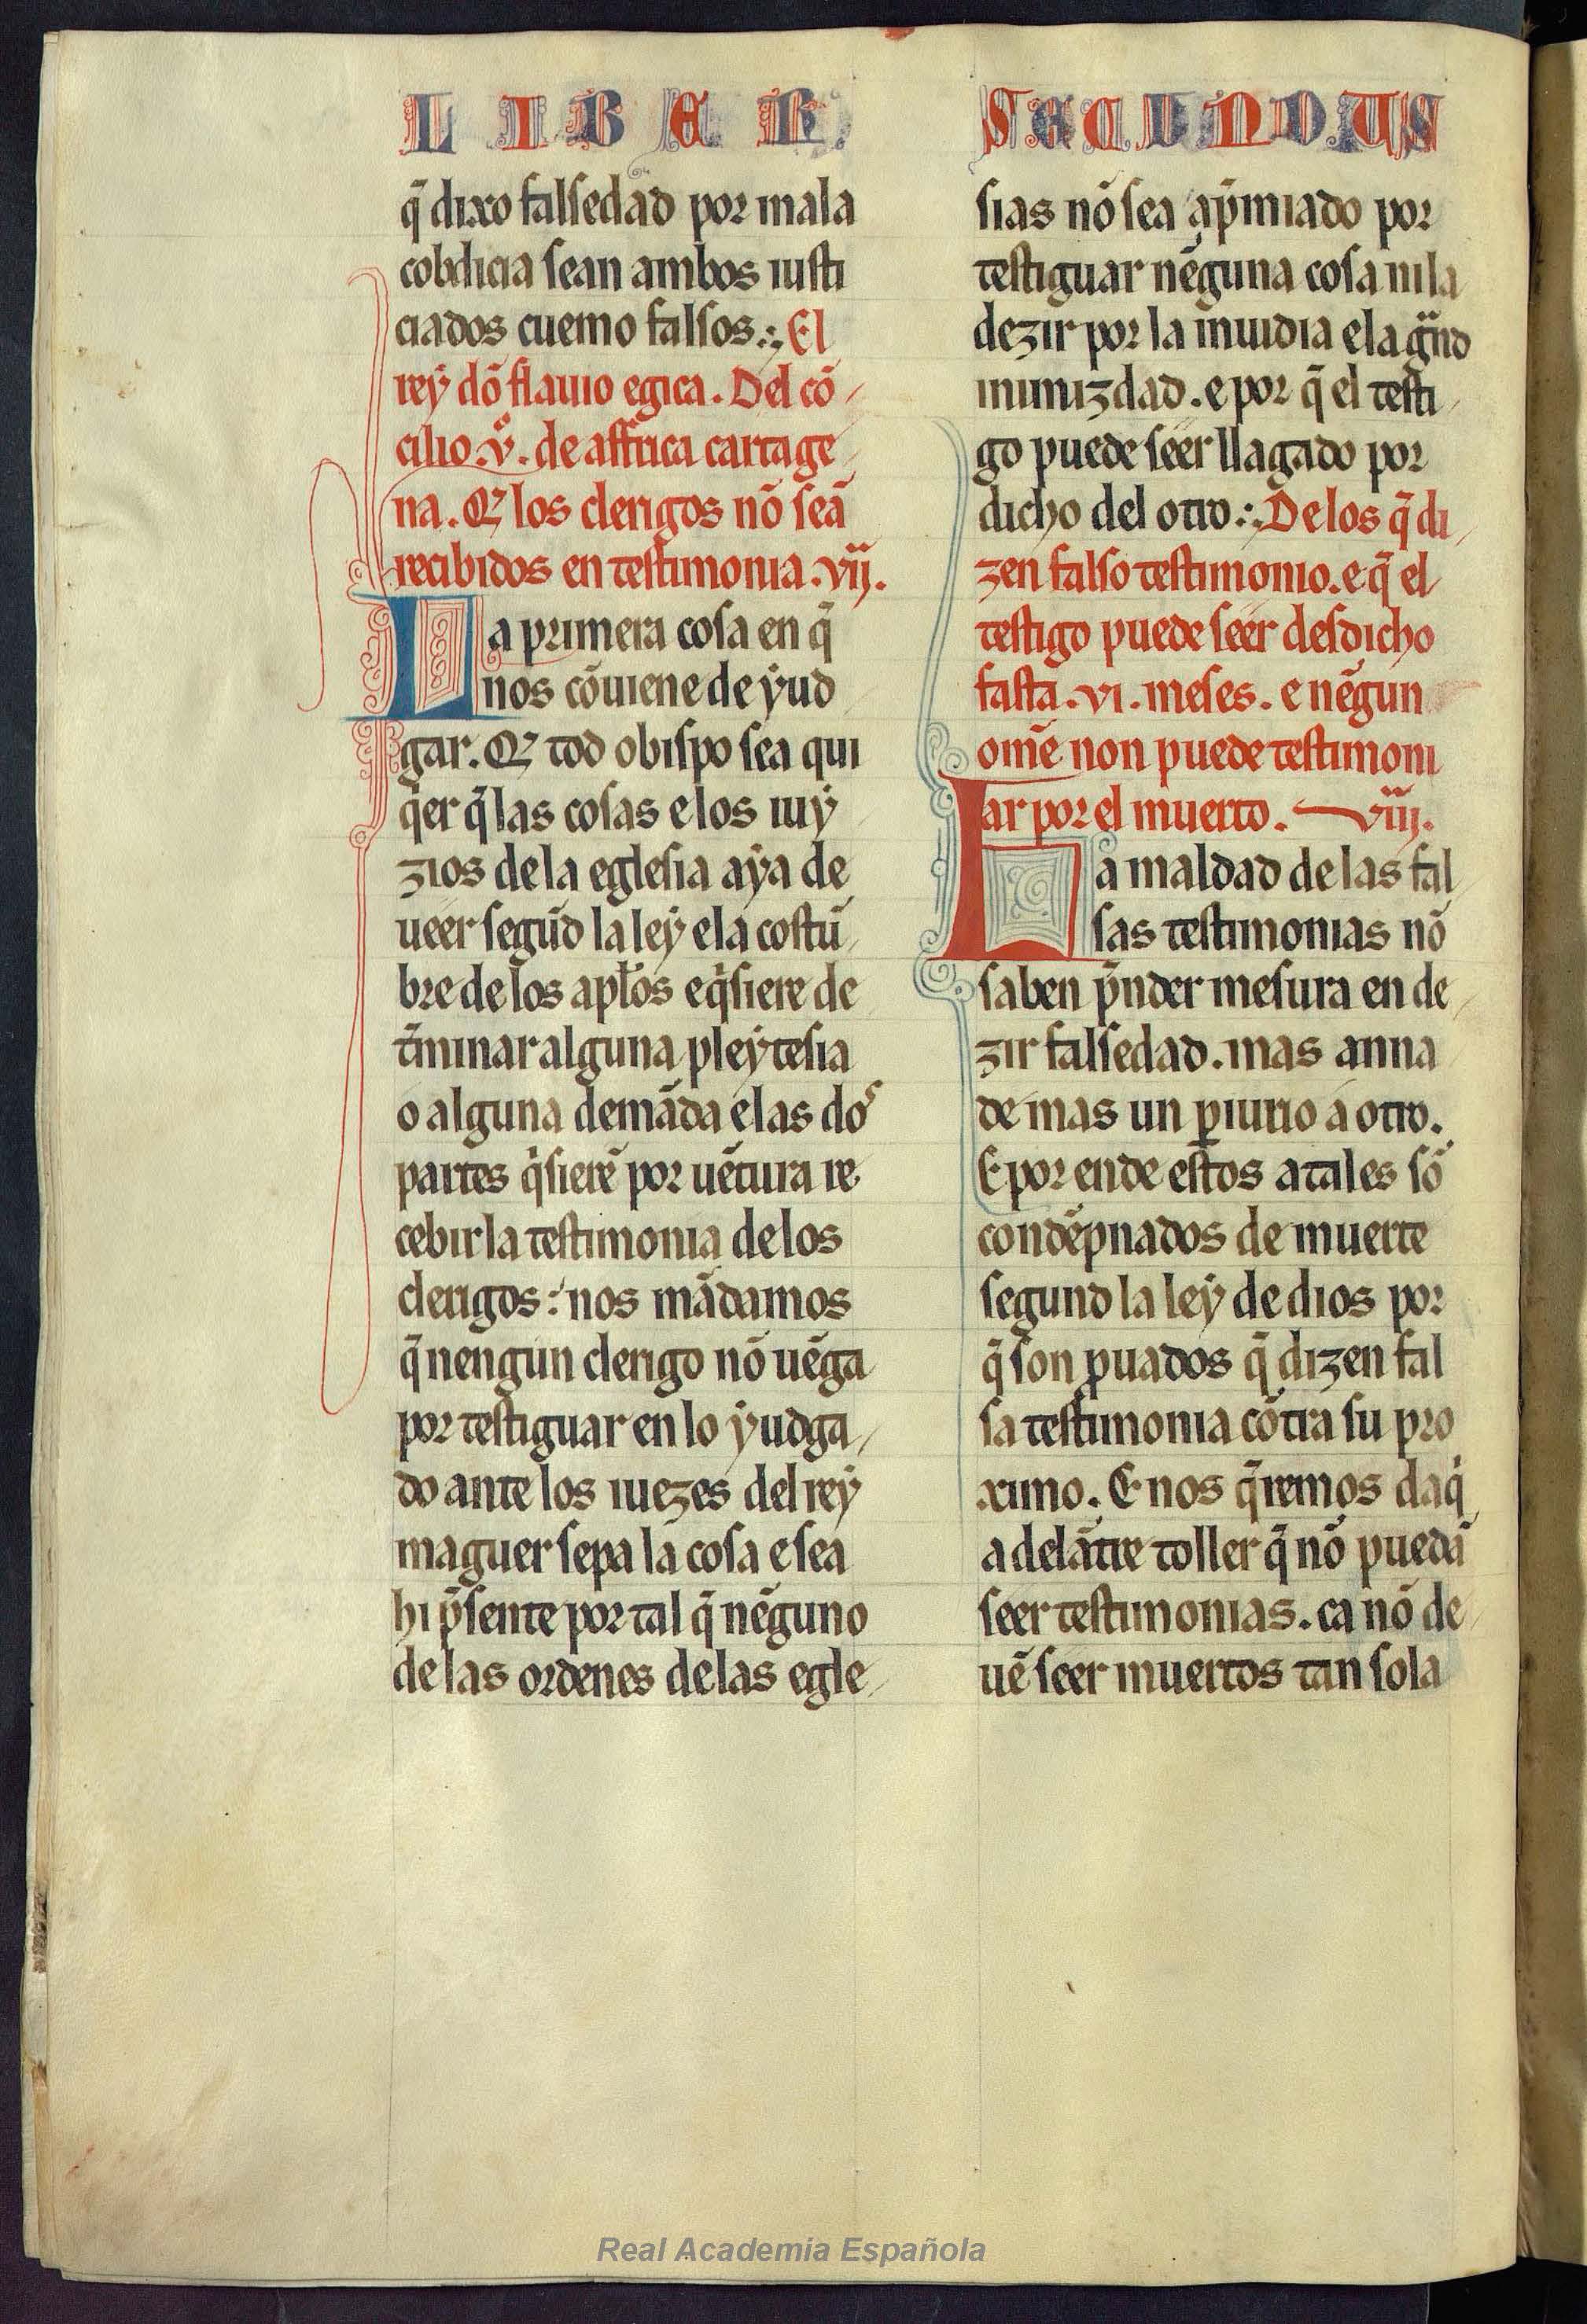 LIBER
q̃ dixo falsedad por mala
cobdicia sean ambos iusti
ciados cuemo falsos.:. El
rey dõ flauio egica. Del cõ
cilio .vº. de affrica cartage
na. Q̃ los clerigos nõ seã
recibidos en testimonia. vij.
La primera cosa en q̃
nos cõuiene de yud
gar. Q̃ tod obispo sea qui
q̃er q̃ las cosas e los iuy
zios de la eglesia aya de
ueer segũd la ley e la costũ
bre de los aplos e q̃siere de
t̃minar alguna pleytesia
o alguna demãda e las doˢ
partes q̃sierẽ por uẽtura re
cebir la testimonia de los
clerigos: nos mãdamos
q̃ nengun clerigo nõ uẽga
por testiguar en lo yudga
do ante los iuezes del rey
maguer sepa la cosa e sea
hi p̃sente por tal q̃ nẽguno
de las ordenes de las egle
SECUNDUS
sias nõ sea ap̃miado por
testiguar nẽguna cosa nila
dezir por la inuidia e la gᵃnd
inimizdad. e por q̃ el testi
go puede seer llagado por
dicho del otro.:. De los q̃ di
zen falso testimonio. e q̃ el
testigo puede seer desdicho
fasta .vi. meses. e nẽgun
om̃e non puede testimoni
ar por el muerto. viij.
La maldad de las fal
sas testimonias nõ
saben p̃nder mesura en de
zir falsedad. mas anna
de mas un ꝑiurio a otro.
E por ende estos atales sõ
condẽpnados de muerte
segund la ley de dios por
q̃ son ꝓuados q̃ dizen fal
sa testimonia cõtra su pro
ximo. E nos q̃remos daq̃
adelãtre toller q̃ nõ puedã
seer testimonias. ca nõ de
uẽ seer muertos tan sola
Real Academia Española